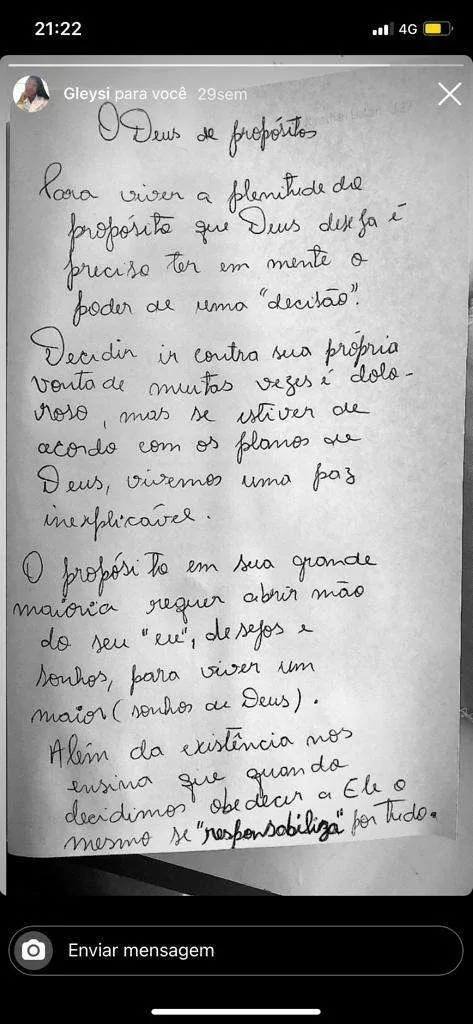 21:22
4G
Gleysi para você 29sem
O Deus de propósitos
Para viver a plenitude do
propósito que Deus deseja é
preciso ter em mente o
poder de uma "decisão".
Decidir ir contra sua própria
vontade muitas vezes é dolo-
roso, mas se estiver de
acordo com os planos de
Deus, vivemos uma paz
inexplicável.
O propósito em sua grande
maioria requer abrir mão
do seu "eu", desejos e
sonhos, para viver um
maior (sonhos de Deus).
Além da existência nos
ensina que quando
decidimos obedecer a Ele o
mesmo se "responsabiliza" por tudo.
Enviar mensagem